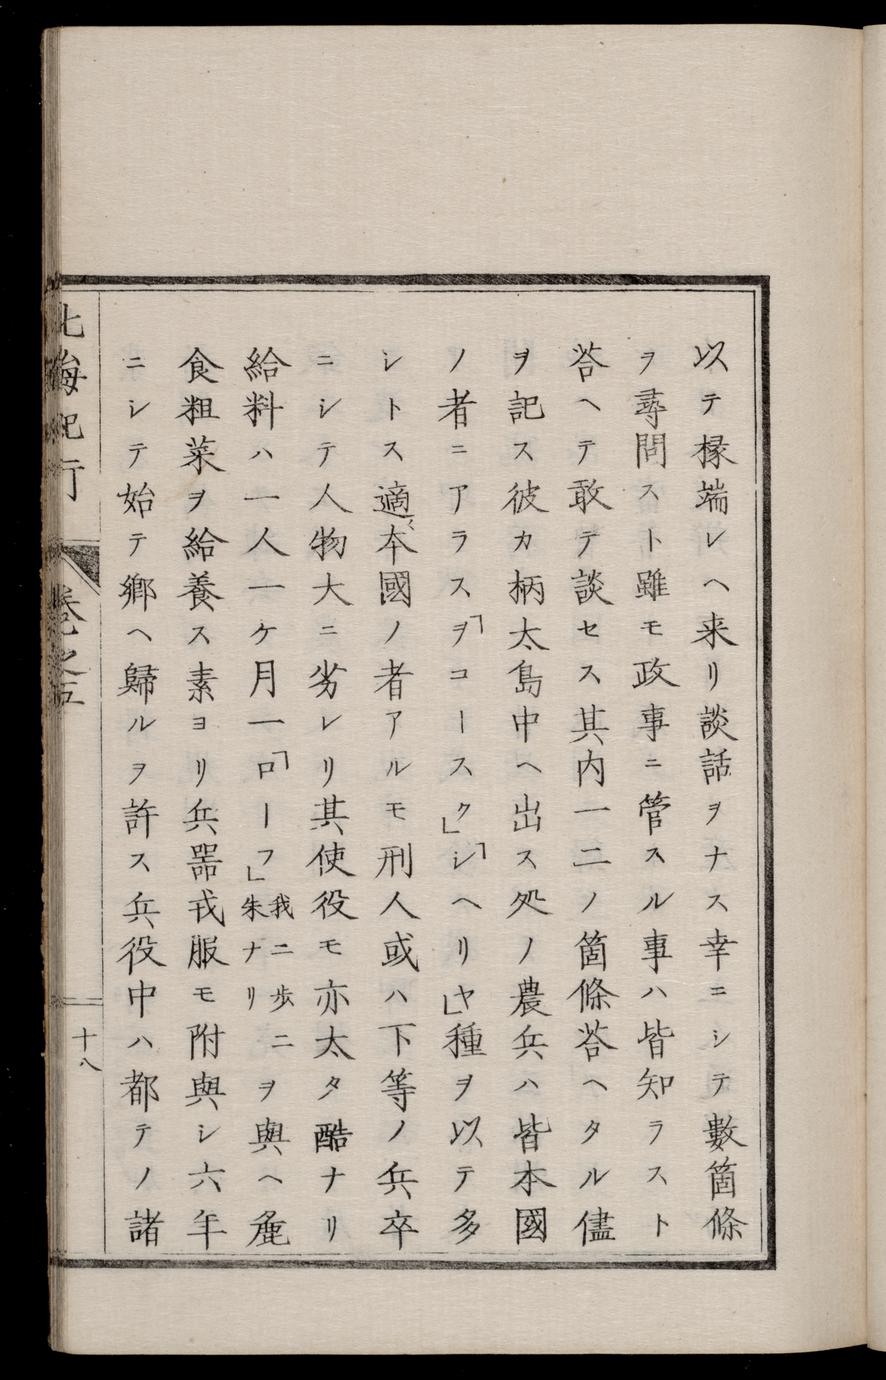 以テ椽端レヘ来リ談話ヲナス幸ニシテ數箇條
ヲ尋問スト雖モ政事ニ管スル事ハ皆知ラスト
荅ヘテ敢テ談セス其内一二ノ箇條荅ヘタル儘
ヲ記ス彼カ柄太島中ヘ出ス処ノ農兵ハ皆本國
ノ者ニアラス「ヲコースク」「シヘリヤ」種ヲ以テ多
シトス適〻本國ノ者アルモ刑人或ハ下等ノ兵卒
ニシテ人物大ニ劣レリ其使役モ亦太タ酷ナリ
給料ハ一人一ケ月一「ローフ」我二歩二朱ナリヲ與ヘ麁
食粗菜ヲ給養ス素ヨリ兵噐戎服モ附與シ六年
ニシテ始テ鄉ヘ歸ルヲ許ス兵役中ハ都テノ諸
北海紀行
卷之五
十八